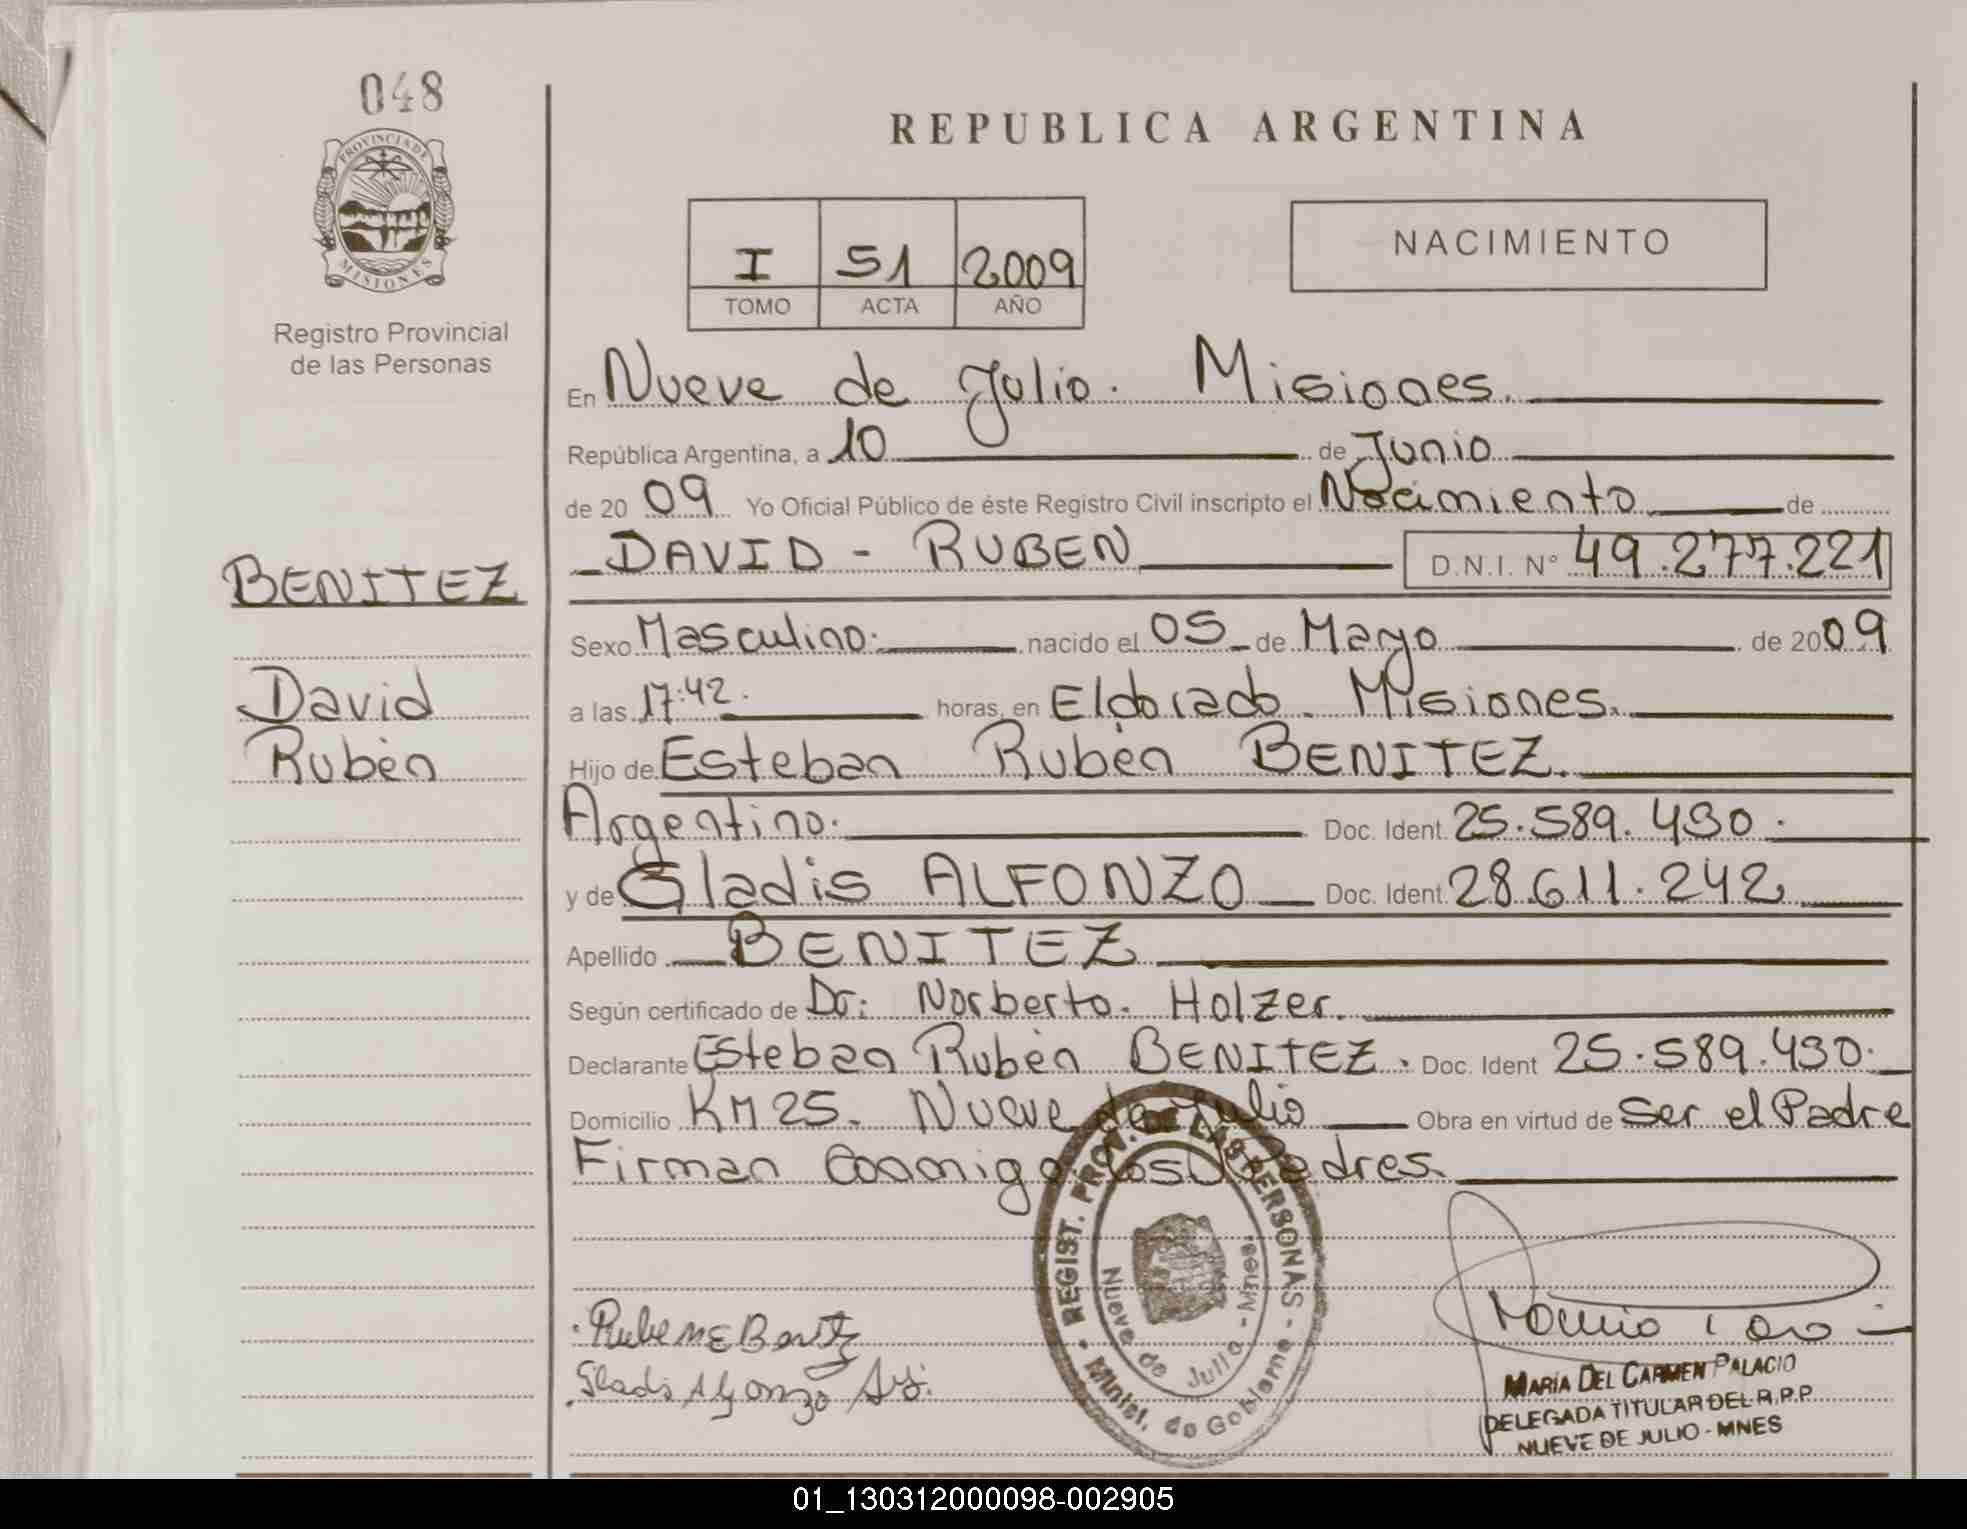 048
PROVINCIA DE
MISIONES
Registro Provincial
de las Personas
REPUBLICA ARGENTINA
I 51 2009
TOMO ACTA AÑO
NACIMIENTO
En Nueve de Julio. Misiones.
República Argentina, a 10 de Junio
de 20 09 Yo Oficial Público de éste Registro Civil inscripto el Nacimiento de
DAVID - RUBEN D.N.I. N° 49.277.221
BENITEZ
Sexo Masculino. nacido el 05 de Mayo de 20 09
David
a las 17:42. horas, en Eldorado. Misiones.
Rubén
Hijo de Esteban Rubén BENITEZ.
Argentino. Doc. Ident. 25.589.430.
y de Gladis ALFONZO Doc. Ident. 28.611.242
Apellido BENITEZ
Según certificado de Dr: Norberto. Holzer.
Declarante Esteban Rubén BENITEZ. Doc. Ident 25.589.430.
Domicilio KM 25. Nueve de Julio Obra en virtud de Ser el Padre
Firman Conmigo los Padres.
REGIST. PROV. DE LAS PERSONAS - Minist. de Gobierno -
Nueve de Julio - Mnes.
MARIA DEL CARMEN PALACIO
DELEGADA TITULAR DEL R.P.P.
NUEVE DE JULIO - MNES
01_130312000098-002905